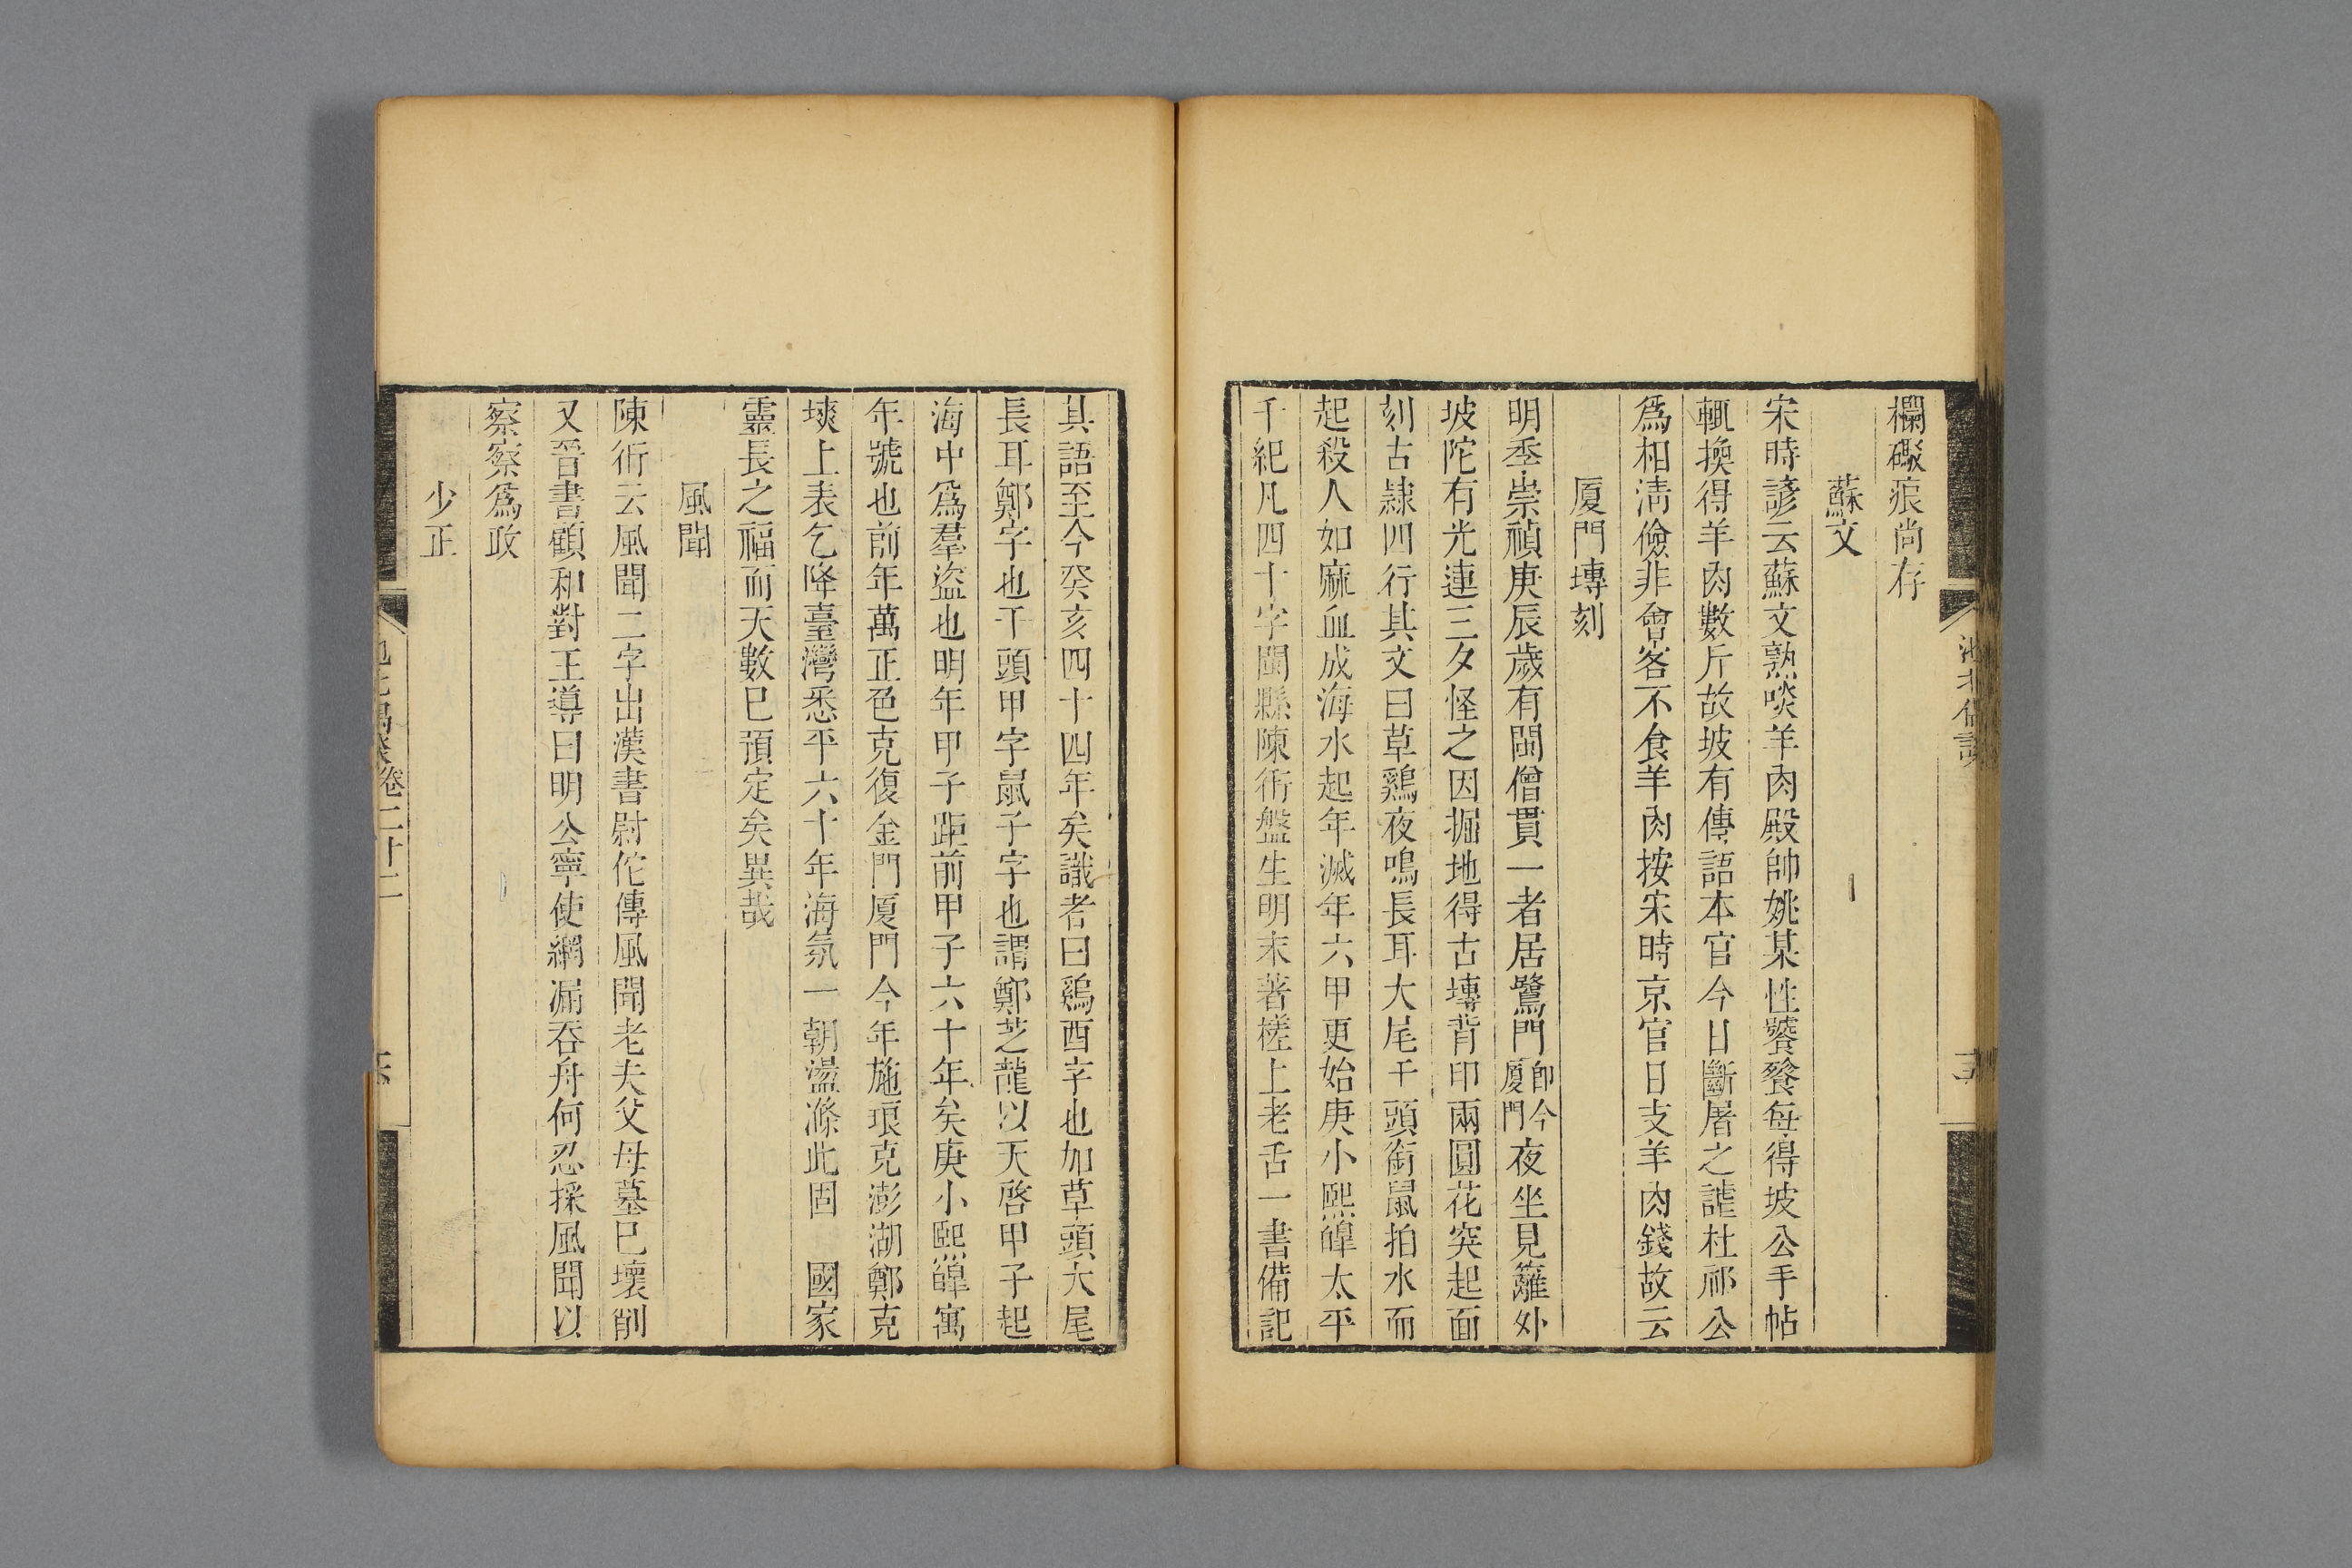 欄礙痕尚存
蘇文
宋時諺云蘇文熟啖羊肉殿帥姚某性饕餮每得坡公手帖
輒換得羊肉數斤故坡有傳語本官今日斷屠之謔杜祁公
爲相清儉非會客不食羊肉按宋時京官日支羊肉錢故云
厦門塼刻
明季崇禎庚辰歲有閩僧貫一者居鷺門即今厦門夜坐見籬外
坡陀有光連三夕怪之因掘地得古塼背印兩圓花突起面
刻古隷四行其文曰草鷄夜鳴長耳大尾干頭銜鼠拍水而
起殺人如麻血成海水起年滅年六甲更始庚小熙皞太平
千紀凡四十字閩縣陳衎盤生明末著槎上老舌一書備記
其語至今癸亥四十四年矣識者曰鷄酉字也加草頭大尾
長耳鄭字也干頭甲字鼠子字也謂鄭芝龍以天啓甲子起
海中爲羣盜也明年甲子距前甲子六十年矣庚小熙皞寓
年號也前年萬正色克復金門厦門今年施琅克澎湖鄭克
塽上表乞降臺灣悉平六十年海氛一朝盪滌此固 國家
靈長之福而天數已預定矣異哉
風聞
陳衎云風聞二字出漢書尉佗傳風聞老夫父母墓已壞削
又晉書顧和對王導曰明公寧使網漏吞舟何忍採風聞以
察察爲政
少正
卷二十二